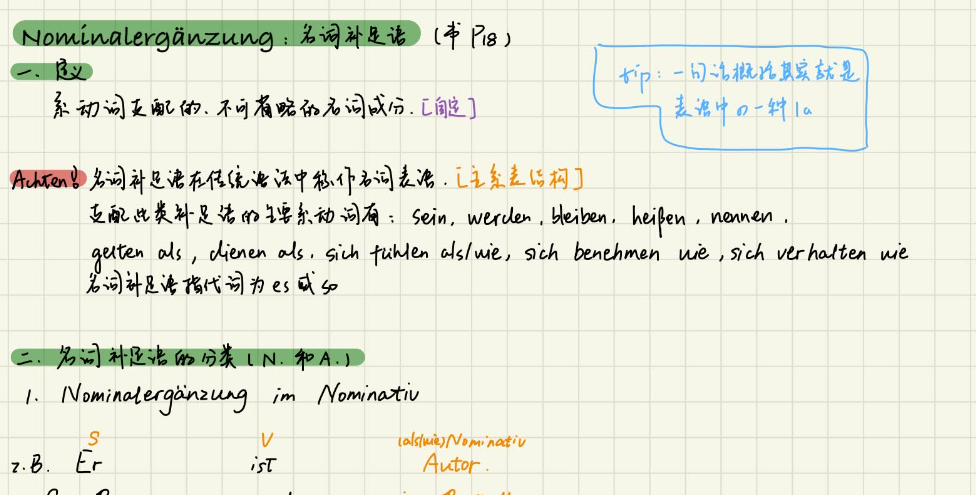 Nominalergänzung：名词补足语 (书 P18)
一. 定义
tip：一句话概括其实就是
表语中の一种la
系动词支配的、不可省略的名词成分.[固定]
Achten! 名词补足语在传统语法中称作名词表语.[主系表结构]
支配此类补足语的主要系动词有：sein, werden, bleiben, heißen, nennen,
gelten als, dienen als, sich fühlen als/wie, sich benehmen wie, sich verhalten wie
名词补足语指代词为 es 或 so
二. 名词补足语的分类 (N. 和 A.)
1. Nominalergänzung im Nominativ
S V (als/wie) Nominativ
z.B. Er ist Autor.